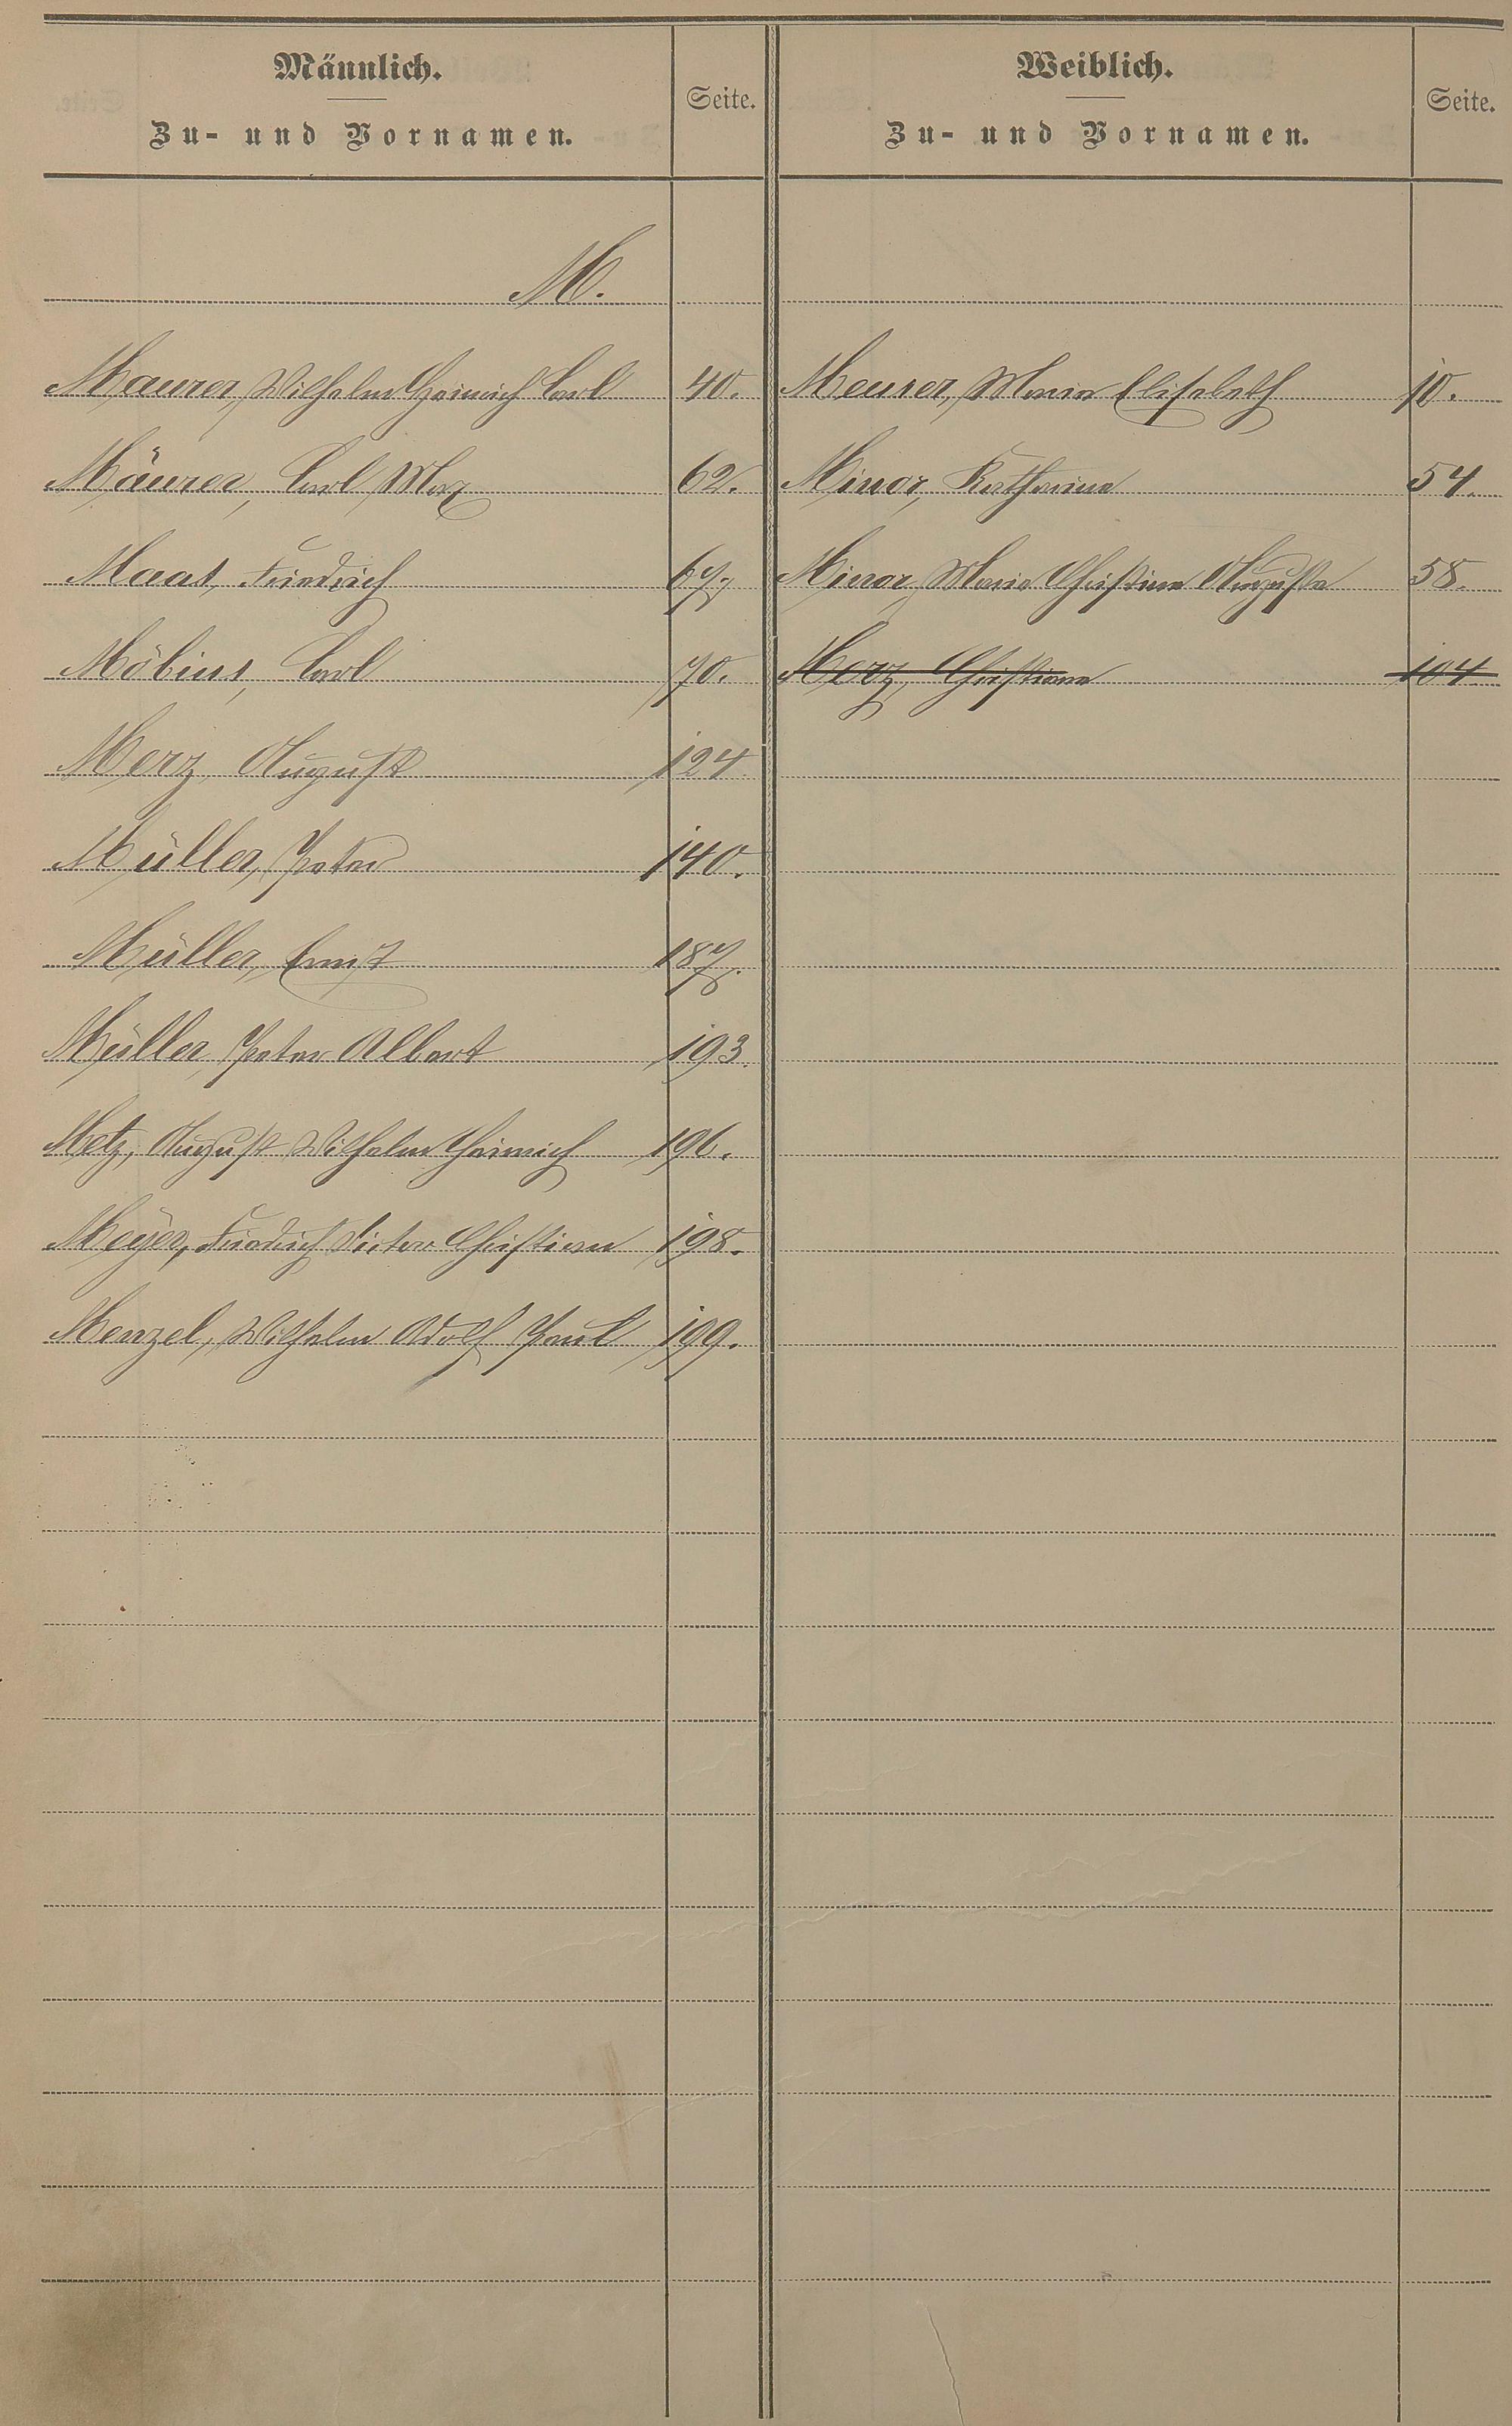 Männlich.
Zu- und Vornamen.
Seite.
Weiblich.
Zu- und Vornamen.
Seite.
M.
Maurer, Wilhelm Heinrich Carl 40. Meurer, Maria Elisabeth 10.
Mäurer, Carl Max 62. Minor, Katharina 54.
Maas, Friedrich 67. Minor, Maria Christine Auguste 58.
Möbius, Carl 70. Merz, Christiane 104
Merz, August 124.
Müller, Peter 140.
Müller, Ernst 187.
Müller, Peter Albert 193.
Metz, August Wilhelm Heinrich 196.
Meÿer, Friedrich Victor Christian 198.
Menzel, Wilhelm Adolf Paul 199.